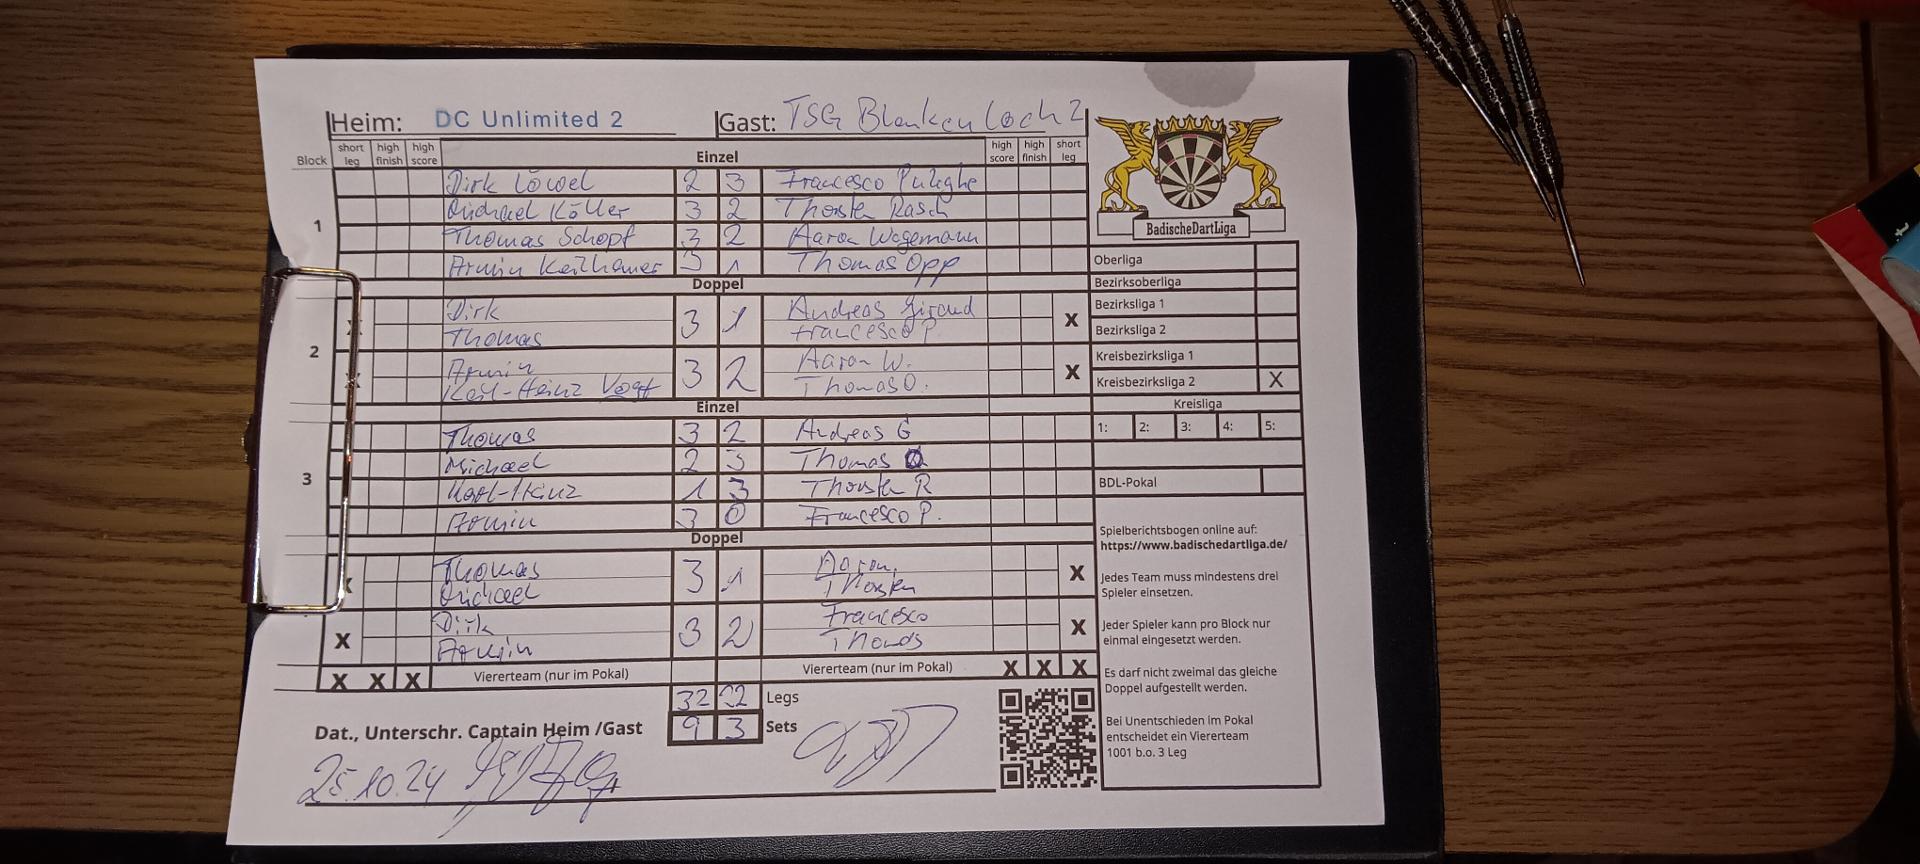 Heim: DC Unlimited 2 Gast: TSG Blankenloch 2
Block short leg high finish high score Einzel high score high finish short leg
1
Dirk Löwel 2 3 Francesco
Michael Köller 3 2 Thorsten Rasch
Thomas Schopf 3 2 Aaron Wagemann
Armin 3 1 Thomas Opp
Doppel
2
Dirk 3 1 Andreas
Thomas Francesco P. X
Armin 3 2 Aaron W.
Karl-Heinz Vogt Thomas O. X
Einzel
3
Thomas 3 2 Andreas G
Michael 2 3 Thomas
Karl-Heinz 1 3 Thorsten R
Armin 3 0 Francesco P.
Doppel
Thomas 3 1 Aaron
Michael Thorsten X
X Dirk 3 2 Francesco X
Armin Thomas
X X X Viererteam (nur im Pokal) Viererteam (nur im Pokal) X X X
32 Legs
Dat., Unterschr. Captain Heim /Gast 9 3 Sets
25.10.24
BadischeDartLiga
Oberliga
Bezirksoberliga
Bezirksliga 1
Bezirksliga 2
Kreisbezirksliga 1
Kreisbezirksliga 2 X
Kreisliga
1: 2: 3: 4: 5:
BDL-Pokal
Spielberichtsbogen online auf:
https://www.badischedartliga.de/
Jedes Team muss mindestens drei
Spieler einsetzen.
Jeder Spieler kann pro Block nur
einmal eingesetzt werden.
Es darf nicht zweimal das gleiche
Doppel aufgestellt werden.
Bei Unentschieden im Pokal
entscheidet ein Viererteam
1001 b.o. 3 Leg